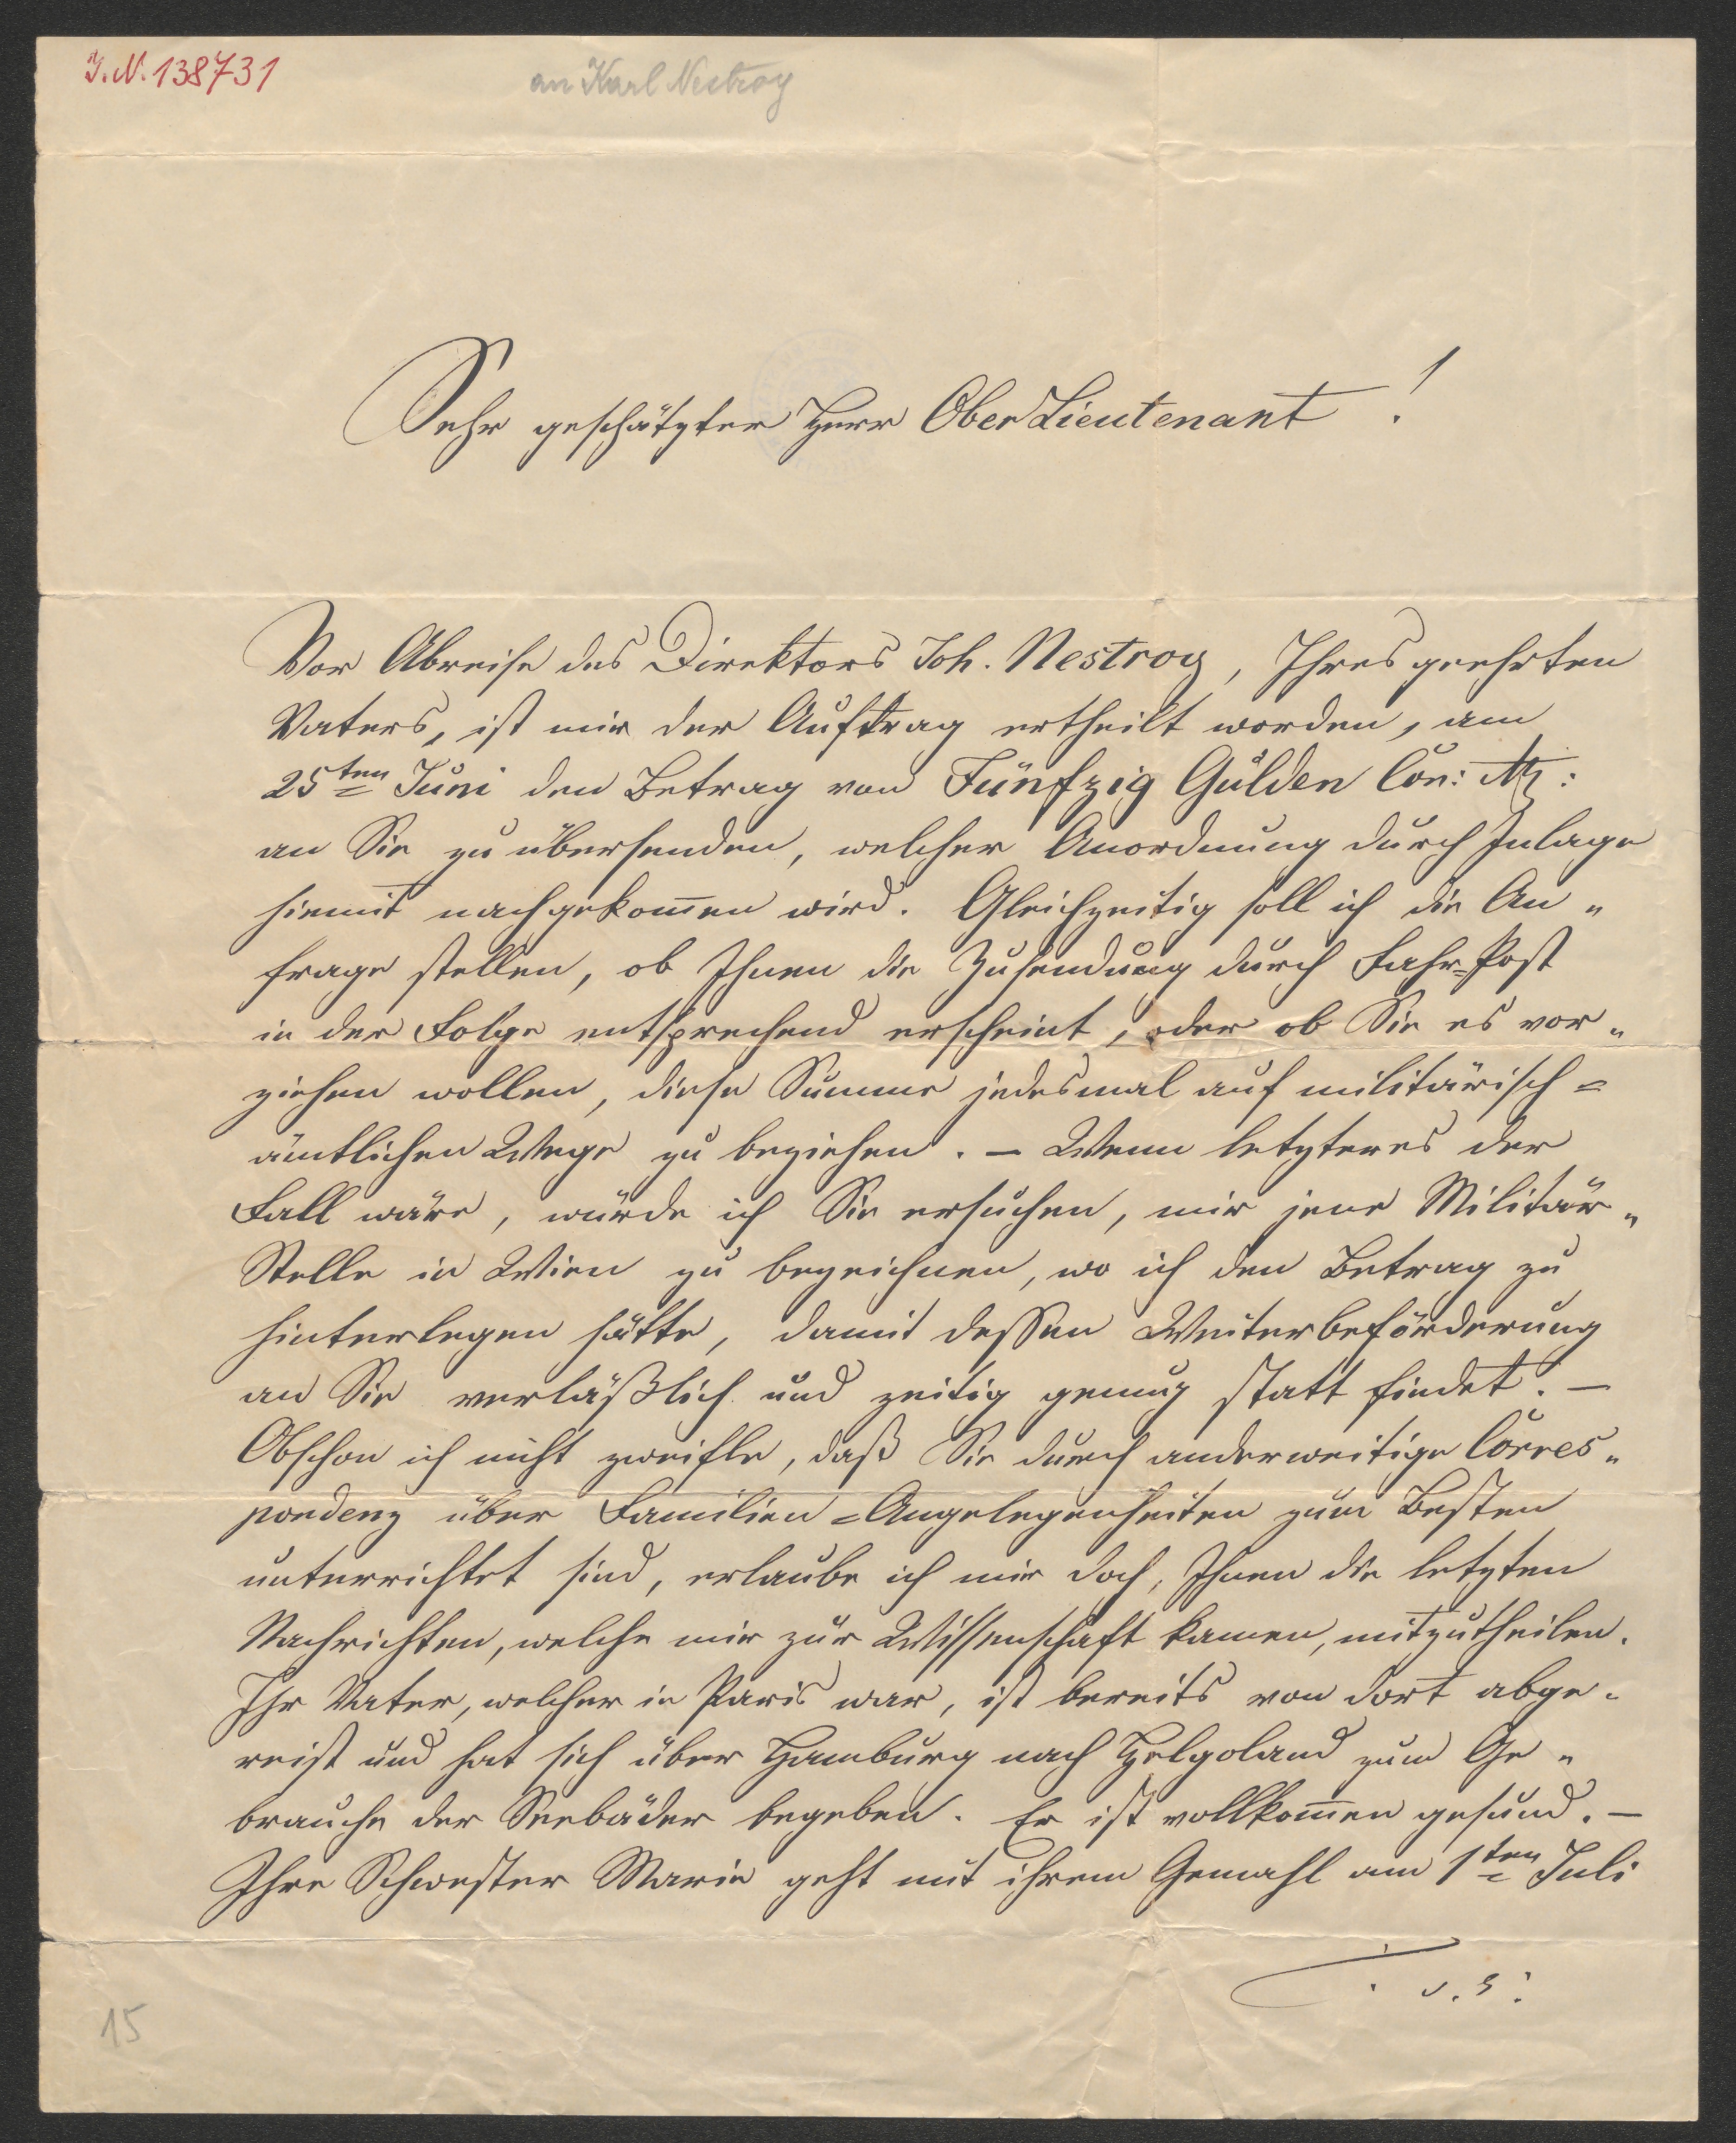 I.N. 138731
an Karl Nestroy
Sehr geschätzter Herr OberLieutenant!
Vor Abreise des Direktors Joh. Nestroy, Ihres geehrten
Vaters, ist mir der Auftrag ertheilt worden, am
25ten Juni den Betrag von Fünfzig Gulden Con: Mz:
an Sie zu übersenden, welcher Anordnung durch Inlage
hiemit nachgekom̅en wird. Gleichzeitig soll ich die An„
frage stellen, ob Ihnen die Zusendung durch Fahr=Post
in der Folge entsprechend erscheint, oder ob Sie es vor„
ziehen wollen, diese Summe jedesmal auf militärisch=
ämtlichen Wege zu beziehen. – Wenn letzteres der
Fall wäre, würde ich Sie ersuchen, mir jene Militär„
Stelle in Wien zu bezeichnen, wo ich den Betrag zu
hinterlegen hätte, damit dessen Weiterbeförderung
an Sie verläßlich und zeitig genug statt findet. –
Obschon ich nicht zweifle, daß Sie durch anderweitige Corres„
pondenz über Familien=Angelegenheiten zum Besten
unterrichtet sind, erlaube ich mir doch, Ihnen die letzten
Nachrichten, welche mir zur Wissenschaft kamen, mitzutheilen.
Ihr Vater, welcher in Paris war, ist bereits von dort abge„
reist und hat sich über Hamburg nach Helgoland zum Ge„
brauche der Seebäder begeben. Er ist vollkom̅en gesund. –
Ihre Schwester Marie geht mit ihrem Gemahl am 1ten Juli
15